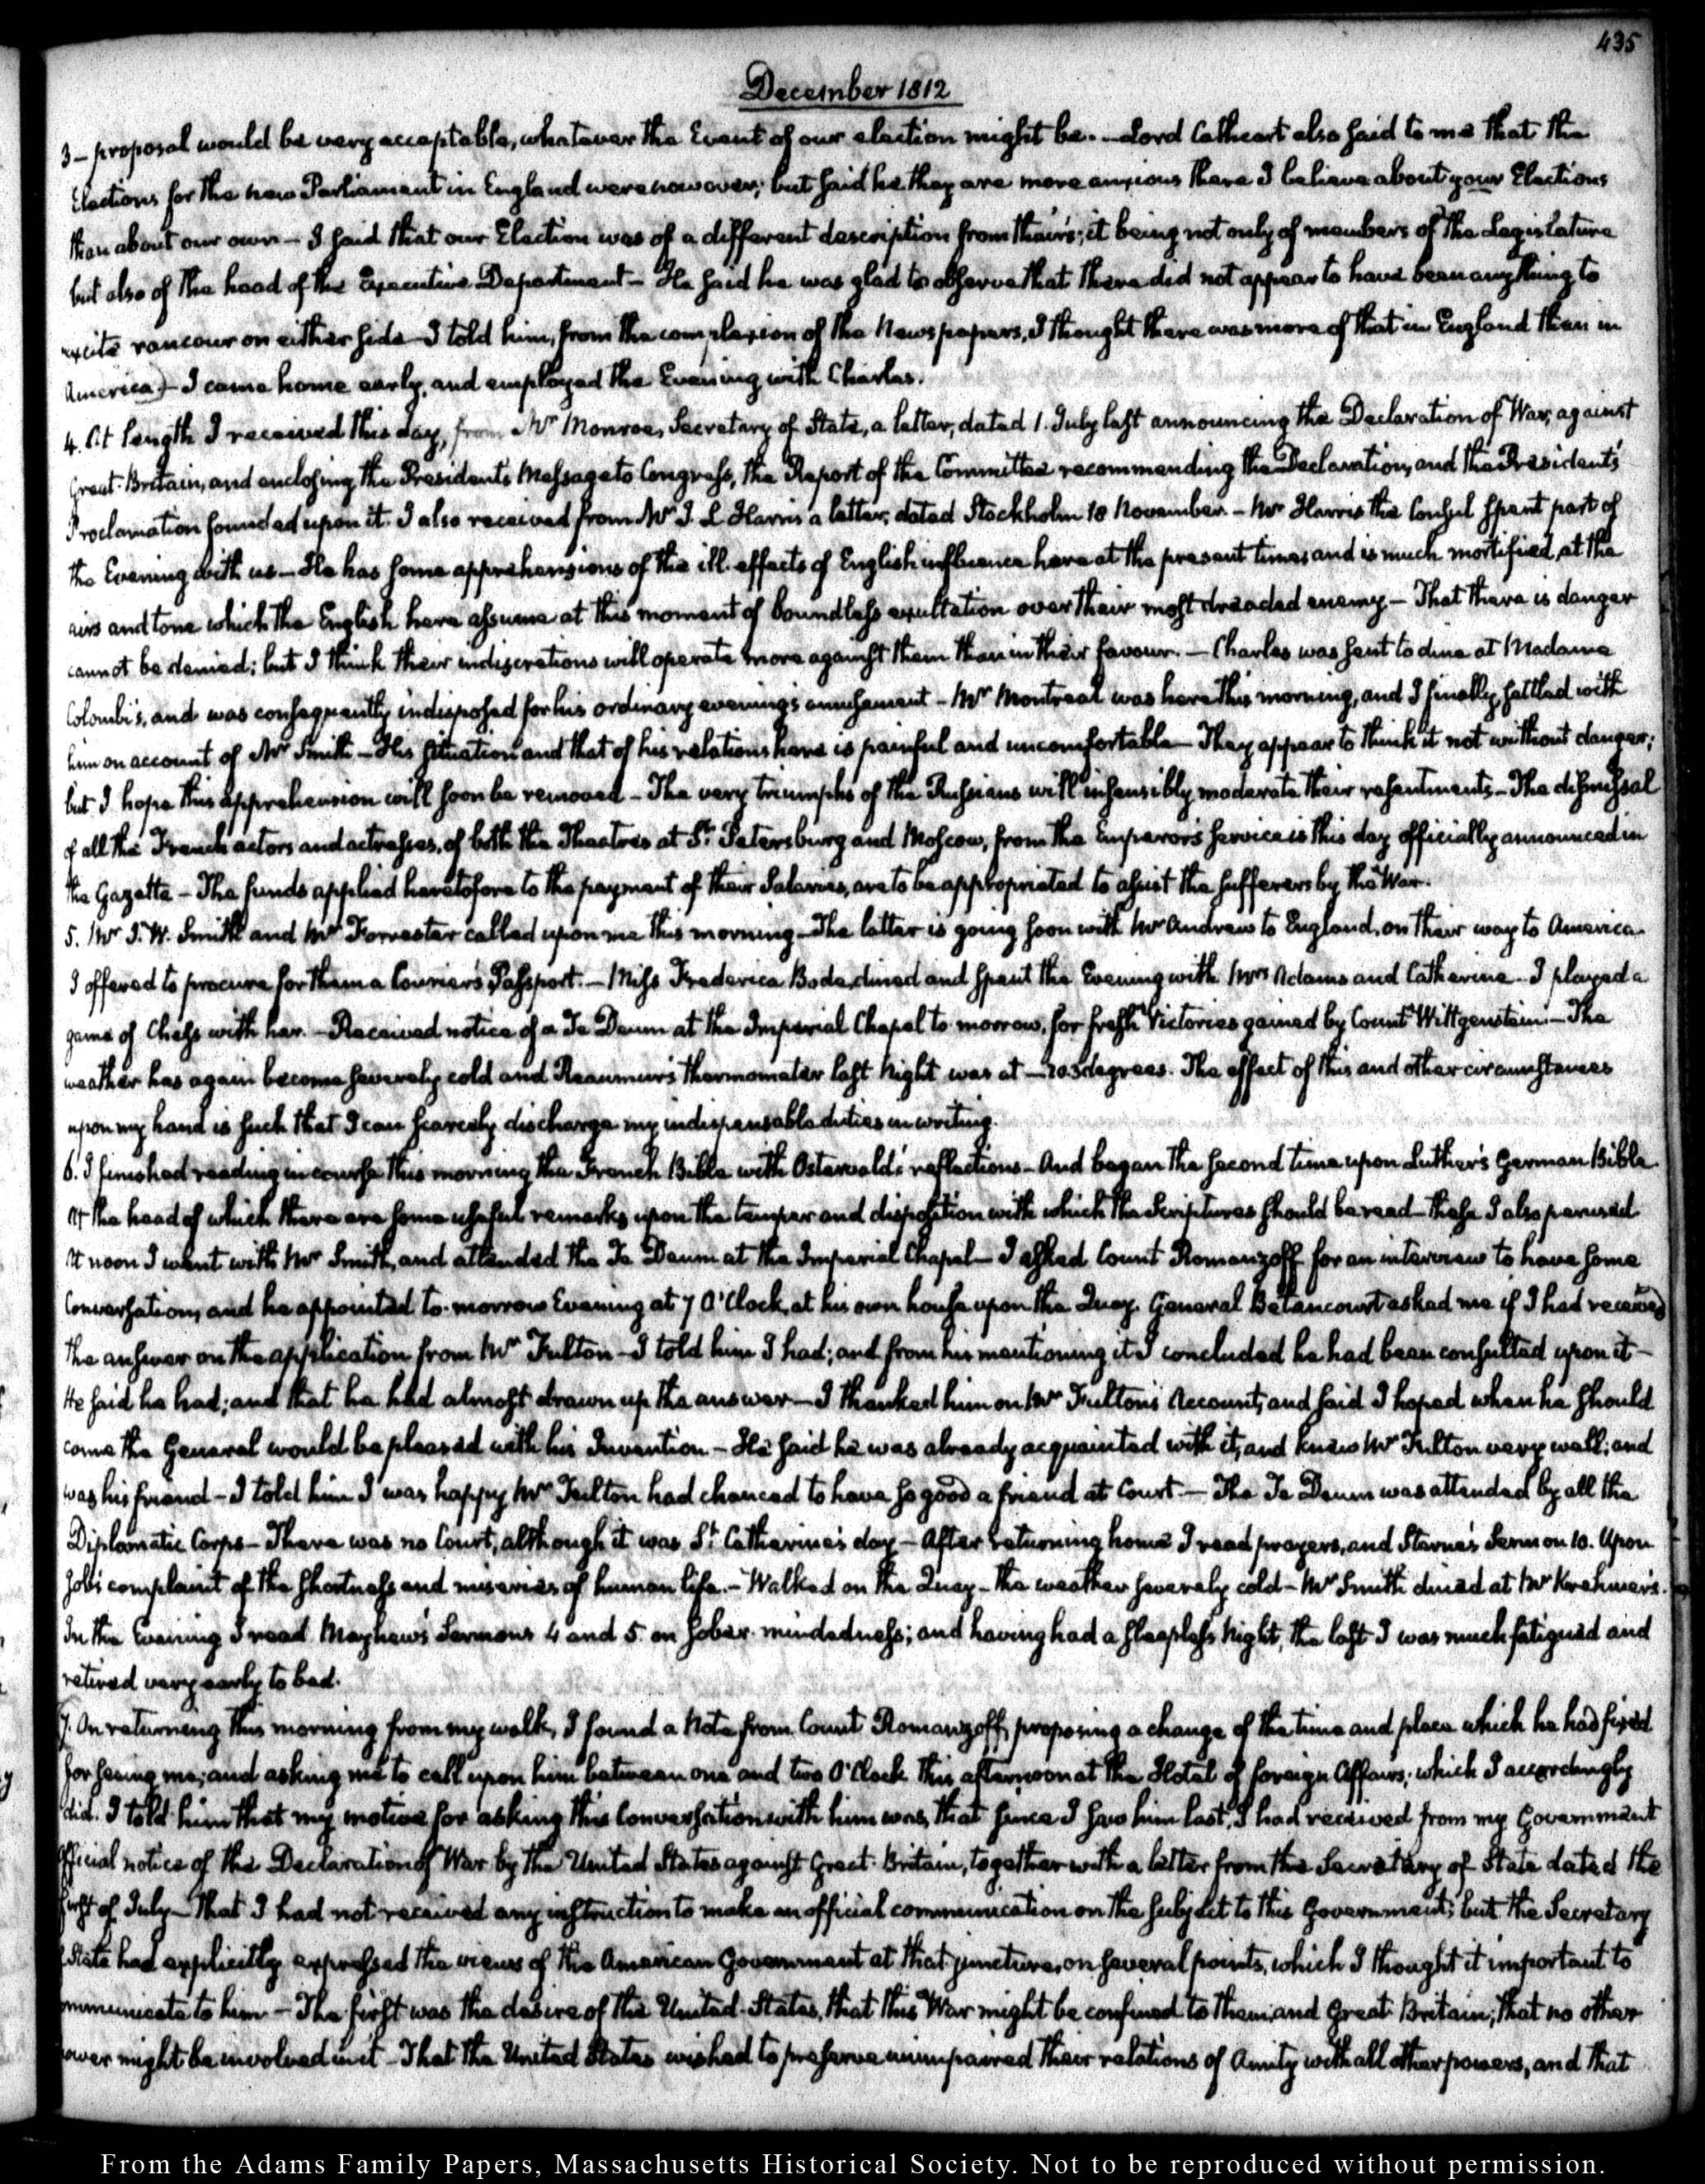 435
December 1812
3 – proposal would be very acceptable, whatever the Event of our election might be. — Lord Cathcart also said to me that the
Elections for the new Parliament in England were now over; but said he they are more anxious there I believe about your Elections
than about our own – I said that our Election was of a different description from theirs; it being not only of members of the Legislature
but also of the head of the Executive Department – He said he was glad to observe that there did not appear to have been any thing to
excite rancour on either side – I told him, from the complexion of the Newspapers, I thought there was more of that in England than in
America) – I came home early, and employed the Evening with Charles.
4. At length I received this day, from Mr Monroe, Secretary of State, a letter, dated 1. July last announcing the Declaration of War, against
Great-Britain, and enclosing the President's Message to Congress, the Report of the Committee recommending the Declaration, and the President's
Proclamation founded upon it. I also received from Mr J. L. Harris a letter, dated Stockholm 18 November. – Mr Harris the Consul spent part of
the Evening with us – He has some apprehensions of the ill effects of English influence here at the present times and is much mortified, at the
airs and tone which the English here assume at this moment of boundless exultation over their most dreaded enemy – That there is danger
cannot be denied; but I think their indiscretions will operate more against them than in their favour. — Charles was sent to dine at Madame
Colombi's, and was consequently indisposed for his ordinary evening's amusement – Mr Montreal was here this morning, and I finally settled with
him on account of Mr Smith – His situation and that of his relations here is painful and uncomfortable – They appear to think it not without danger;
but I hope this apprehension will soon be removed – The very triumphs of the Russians will insensibly moderate their resentments – The dismissal
of all the French actors and actresses, of both the Theatres at St. Petersburg and Moscow, from the Emperor's service is this day officially announced in
the Gazette – The funds applied heretofore to the payment of their Salaries, are to be appropriated to assist the sufferers by the War.
5. Mr J. W. Smith and Mr Forrester called upon me this morning – The latter is going soon with Mr Andrew to England, on their way to America
I offered to procure for them a Courier's Passport. — Miss Frederica Bode, dined and spent the Evening with Mrs Adams and Catherine – I played a
game of Chess with her. – Received notice of a Te Deum at the Imperial Chapel to morrow, for fresh Victories gained by Count Wittgenstein. — The
weather has again become severely cold and Reaumur's thermometer last Night was at – 20.3 degrees. The effect of this and other circumstances
upon my hand is such that I can scarcely discharge my indispensable duties in writing.
6. I finished reading in course this morning the French Bible with Ostervald's reflections – And began the second time upon Luther's German Bible.
At the head of which there are some useful remarks upon the temper and disposition with which the Scriptures should be read – these I also perused
At noon I went with Mr Smith, and attended the Te Deum at the Imperial Chapel – I asked Count Romanzoff for an interview to have some
Conversation, and he appointed to-morrow Evening at 7 O'Clock, at his own house upon the Quay. General Betancourt asked me if I had received
the answer on the application from Mr Fulton – I told him I had; and from his mentioning it I concluded he had been consulted upon it –
He said he had; and that he had almost drawn up the answer – I thanked him on Mr Fulton's Account, and said I hoped when he should
come the General would be pleased with his Invention – He said he was already acquainted with it, and knew Mr Fulton very well; and
was his friend – I told him I was happy Mr Fulton had chanced to have so good a friend at Court. — The Te Deum was attended by all the
Diplomatic Corps – There was no Court, although it was St. Catherine's day – After returning home I read prayers, and Sterne's Sermon 10. Upon
Job's complaint of the shortness and miseries of human life. – Walked on the Quay – the weather severely cold – Mr Smith dined at Mr Krehmer's.
In the Evening I read Mayhew's Sermons 4 and 5 on sober-mindedness; and having had a sleepless Night, the last I was much fatigued and
retired very early to bed.
7. On returning this morning from my walk, I found a Note from Count Romanzoff, proposing a change of the time and place which he had fixed
for seeing me; and asking me to call upon him between one and two O'Clock this afternoon at the Hotel of foreign Affairs; which I accordingly
did. I told him that my motive for asking this Conversation with him was, that since I saw him last, I had received from my Government
Official notice of the Declaration of War by the United States against Great-Britain, together with a letter from the Secretary of State dated the
first of July – That I had not received any instruction to make an official communication on the subject to this Government; but the Secretary
of State had explicitly expressed the views of the American Government at that juncture, on several points, which I thought it important to
communicate to him – The first was the desire of the United-States, that this War might be confined to them and Great-Britain; that no other
power might be involved in it – That the United States wished to preserve unimpaired their relations of Amity with all other powers, and that
From the Adams Family Papers, Massachusetts Historical Society. Not to be reproduced without permission.